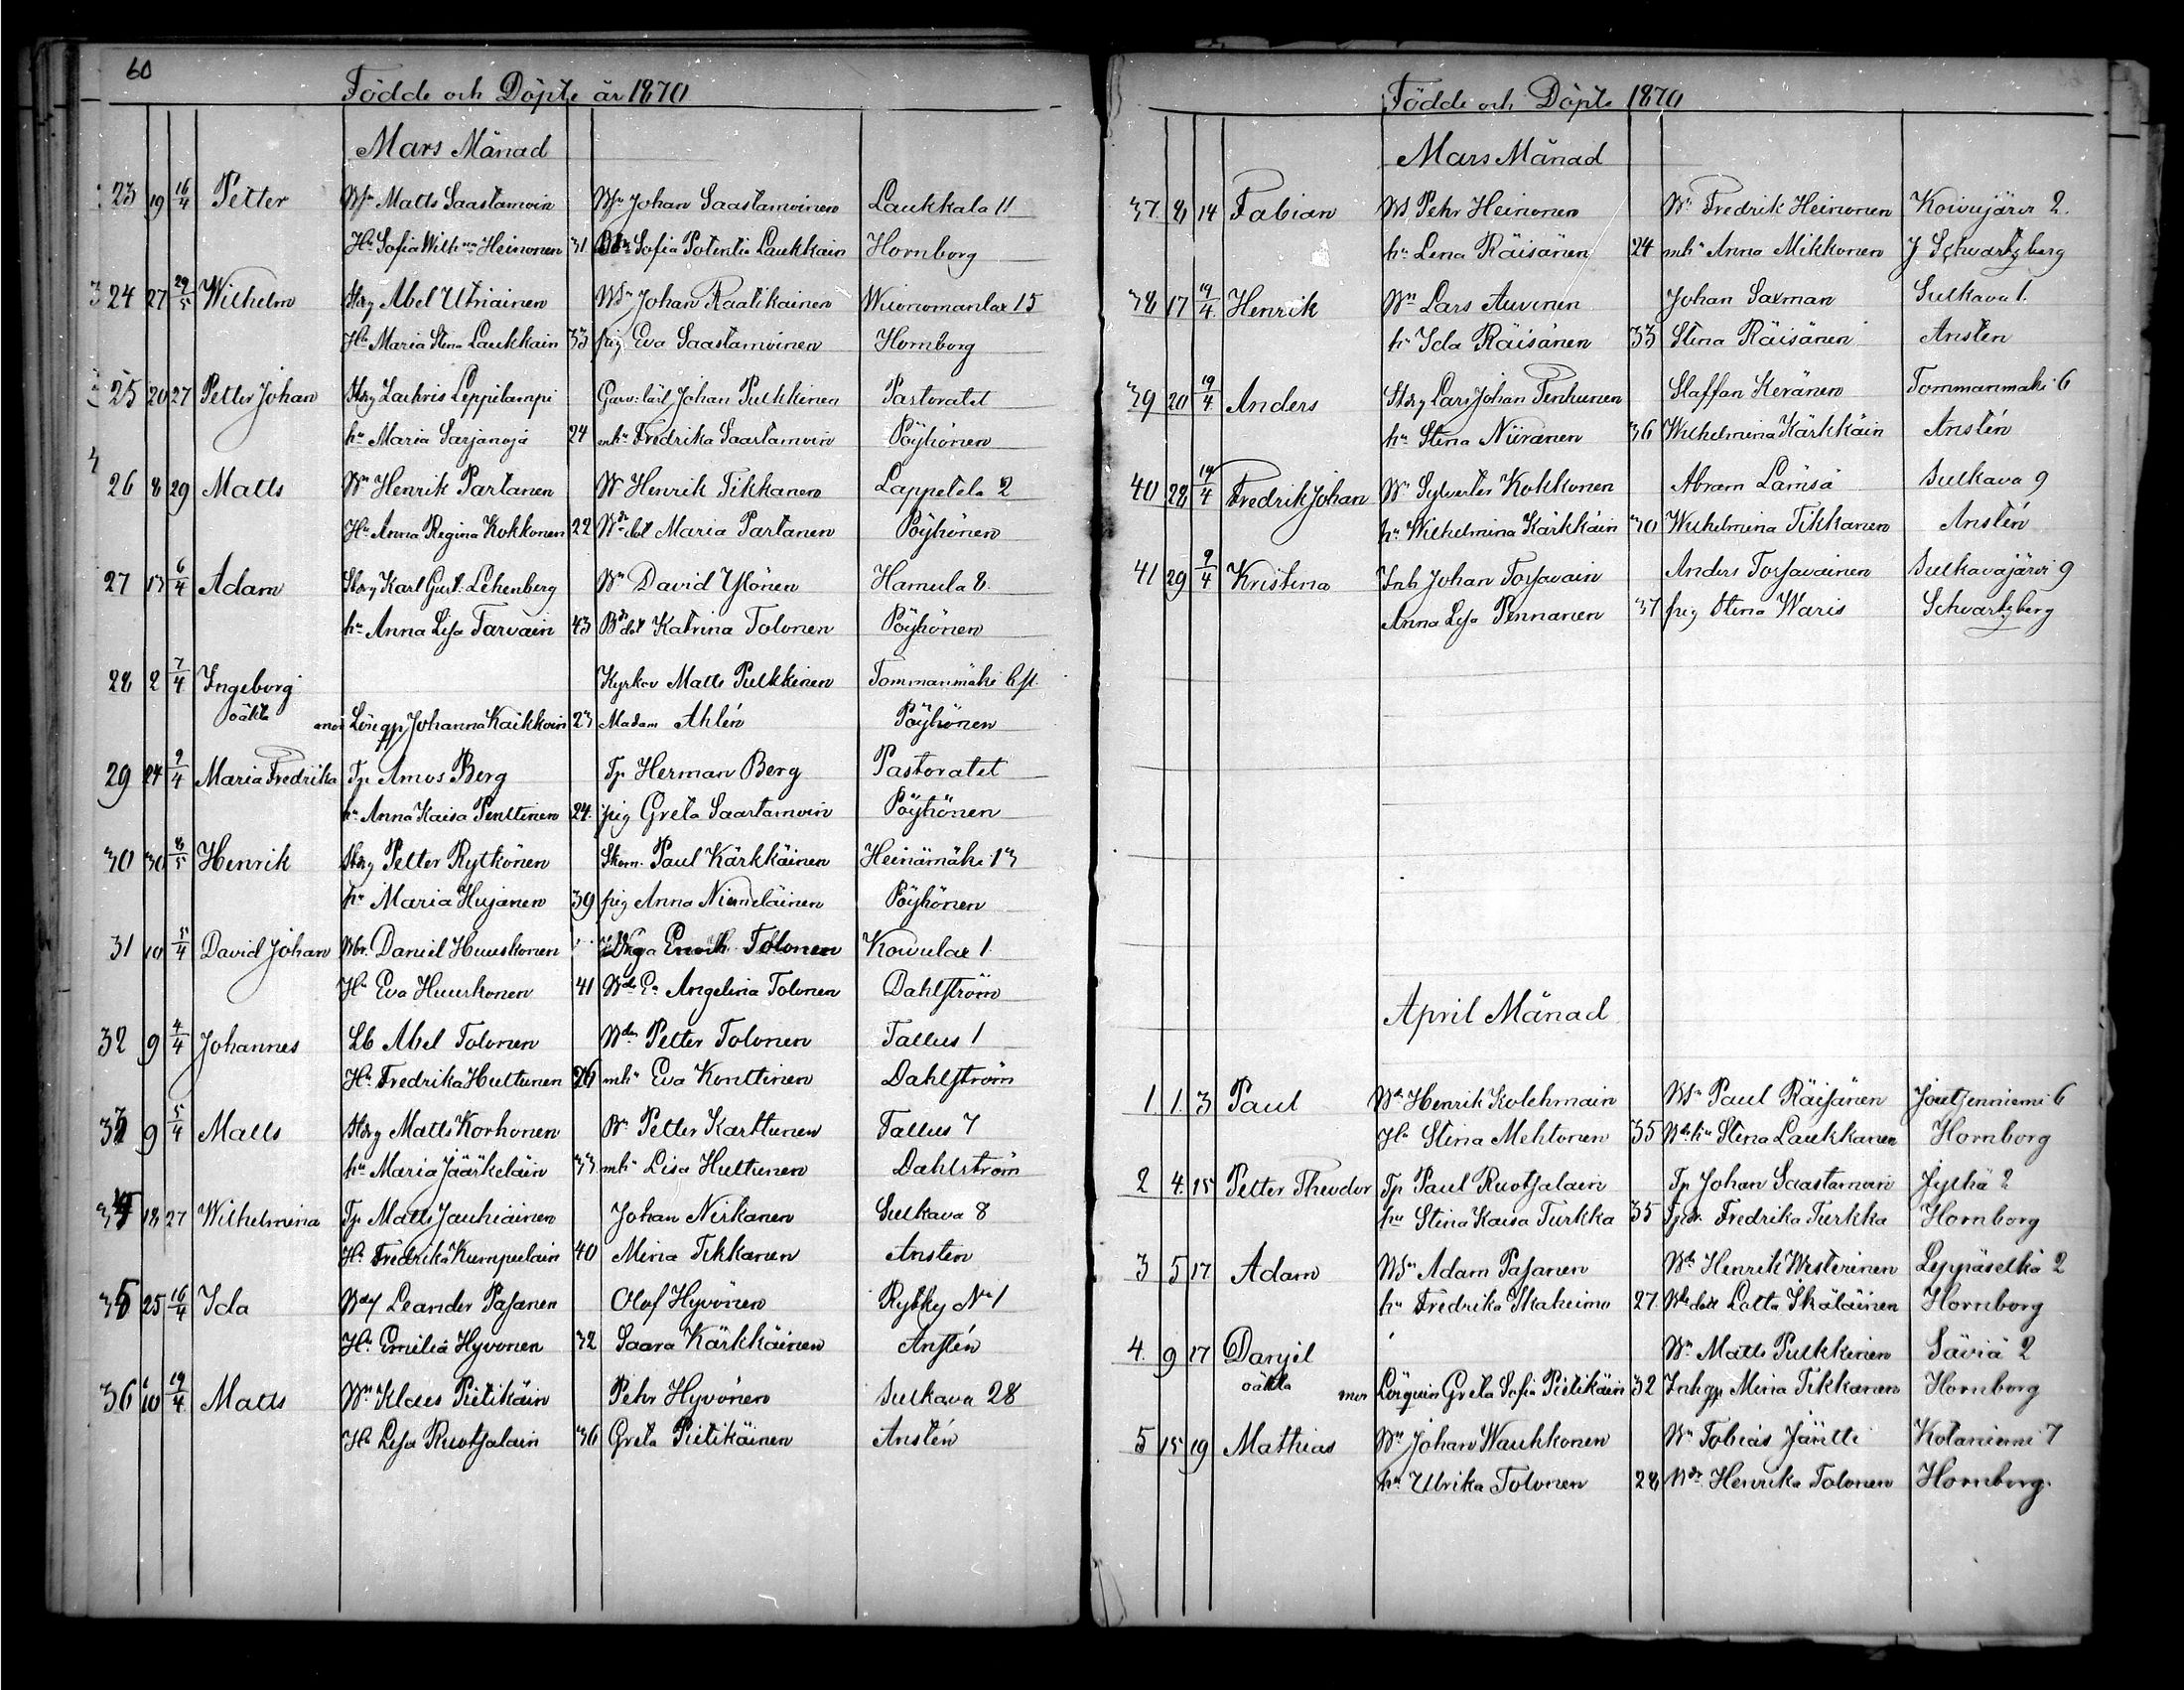 60
Födde och Döpte år 1870
Mars Månad
23 19 16/4 Petter Matts Saastamoin Johan Saastamoinen Laukkala 11
Hu Sofia Heinonen 31 Sofia Potentia Laukkain Hornborg
24 27 29/5 Wilhelm Abel Utriainen Johan Raatikainen 15
Hu Maria Stina Laukkain 33 pig Eva Saastamoinen Hornborg
25 20 27 Petter Johan Leppilampi Johan Pulkkinen Pastoratet
hu Maria Sarjanoja 24 mhu Fredrika Saastamoin Pöyhönen
26 8 29 Matts Wn Henrik Partanen W Henrik Tikkanen Lappetela 2
Hu Anna Regina Kokkonen 22 Maria Partanen Pöyhönen
27 13 6/4 Adam Karl Gust. Lehenberg Wn David Ylönen Hamula 8.
hu Anna Lisa Tarvain 43 Katrina Tolonen Pöyhönen
28 2 7/4 Ingeborg Kyrkov Matts Pulkkinen Tommanmäki
oäkta mor Johanna 23 Madam Ahlén Pöyhönen
29 24 9/4 Maria Fredrika Tp Amos Berg Tp Herman Berg Pastoratet
hu Anna Kaisa Penttinen 24. pig Greta Saastamoin Pöyhönen
30 30 8/5 Henrik Petter Rytkönen Skom. Paul Kärkkäinen Heinämäki 13
hu Maria Hujanen 39 pig Anna Niemeläinen Pöyhönen
31 10 5/4 David Johan Daniel Huuskonen Enoch Tolonen Koivulax 1.
Hu Eva Huuskonen 41 Angelina Tolonen Dahlström
32 9 4/4 Johannes Lb Abel Tolonen Petter Tolonen Tallus 1
Hu Fredrika Huttunen 26 mhu Eva Konttinen Dahlström
33 9 5/4 Matts Matts Korhonen Petter Karttunen Tallus 7
hu Maria Jääskeläin 33 mhu Lisa Hultunen Dahlström
34 18 27 Wilhelmina Tp Matts Jauhiainen Johan Niskanen Sulkava 8
Hu Fredrika Kumpulain 40 Mina Tikkanen Ansten
35 25 16/4 Ida Leander Pasanen Olof Hyvönen Rytky No 1
Hu Emilia Hyvonen 32 Saara Kärkkäinen Anstén
36 10 19/4 Matts Wn Klaes Pietikäin Pehr Hyvönen Sulkava 28
Hu Lisa Ruotsalain 36 Greta Pietikäinen Anstén
Födde och Döpte 1870
Mars Månad
37. 8 14 Fabian Pehr Heinonen Wn Fredrik Heinonen Koivujärvi 2.
hu Lena Räisänen 24 mhu Anna Mikkonen J Schvartzberg
38 17 19/4 Henrik Wn Lars Auvinen Johan Saxman Sulkava 1.
hu Ida Räisänen 33 Stina Räisänen Ansten
39 20 19/4 Anders Lars Johan Tenhunen Staffan Keränen Tommanmäki 6
hu Stina Niiranen 36 Wilhelmina Kärkkäin Anstén
40 28 19/4 Fredrik Johan Wn Sylvester Kokkonen Abram Lämsä Sulkava 9
hu Wilhelmina Kärkkäin 30 Wilhelmina Tikkanen Anstén
41 29 9/4 Kristina Inh Johan Torsavain Anders Torsavainen Sulkavajärvi 9
Anna Lisa Pennanen 37 pig Stina Waris Schvartzberg
April Månad
1 1. 3 Paul Henrik Kolehmain Paul Räisänen Joutsenniemi 6
Hu Stina Mehtonen 35 Stina Laukkanen Hornborg
2 4. 15 Petter Theodor Tp Paul Ruotsalaen Tp Johan Saastamoin Jylhä 2
hu Stina Kaisa Turkka 35 Fredrika Turkka Hornborg
3 5 17 Adam Adam Pasanen Henrik Westerinen Leppäselkä 2
hu Fredrika Ikäheimo 27. Lotta Ikäläinen Hornborg
4. 9 17 Danjel Wn Matts Pulkkinen Säviä 2
oäkta mor Greta Sofia Pietikäin 32 Mina Tikkanen Hornborg
5 15 19 Mathias Wn Johan Waukkonen Wn Tobias Jäntti Kotaniemi 7
hu Ulrika Tolonen 28 Henrika Tolonen Hornborg.